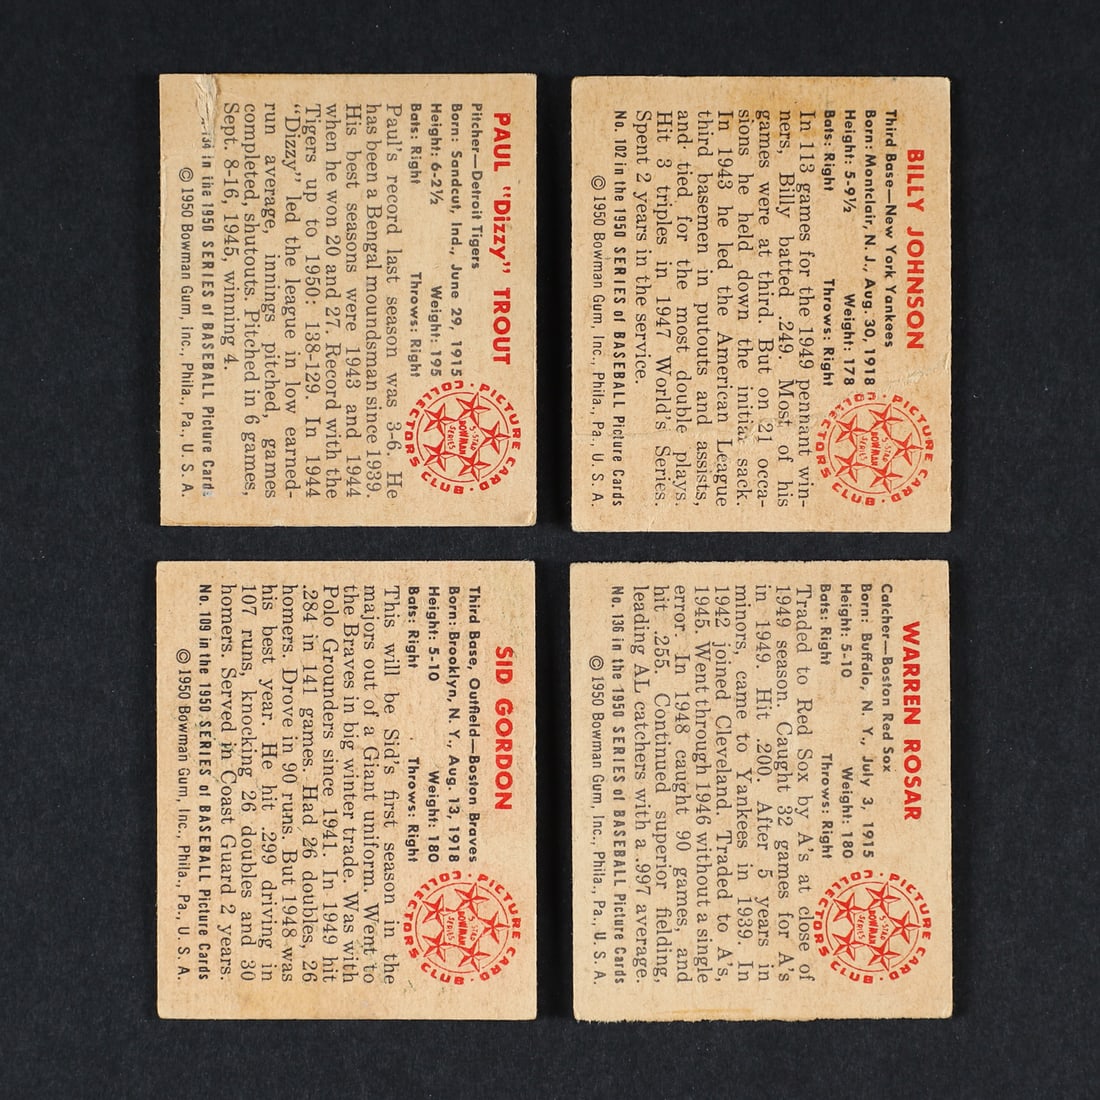 PAUL "Dizzy" TROUT
Pitcher—Detroit Tigers
Born: Sandcut, Ind., June 29, 1915
Height: 6-2½ Weight: 195
Bats: Right Throws: Right
Paul's record last season was 3-6. He
has been a Bengal moundsman since 1939.
His best seasons were 1943 and 1944
when he won 20 and 27. Record with the
Tigers up to 1950: 138-129. In 1944
"Dizzy" led the league in low earned-
run average, innings pitched, games
completed, shutouts. Pitched in 6 games,
Sept. 8-16, 1945, winning 4.
134 in the 1950 SERIES of BASEBALL Picture Cards
© 1950 Bowman Gum, Inc., Phila., Pa., U. S. A.
PICTURE CARD COLLECTORS CLUB
5-STAR
BOWMAN
SERIES
BILLY JOHNSON
Third Base—New York Yankees
Born: Montclair, N. J., Aug. 30, 1918
Height: 5-9½ Weight: 178
Bats: Right Throws: Right
In 113 games for the 1949 pennant win-
ners, Billy batted .249. Most of his
games were at third. But on 21 occa-
sions he held down the initial sack.
In 1943 he led the American League
third basemen in putouts and assists,
and tied for the most double plays.
Hit 3 triples in 1947 World's Series.
Spent 2 years in the service.
No. 102 in the 1950 SERIES of BASEBALL Picture Cards
© 1950 Bowman Gum, Inc., Phila., Pa., U. S. A.
PICTURE CARD COLLECTORS CLUB
5-STAR
BOWMAN
SERIES
SID GORDON
Third Base, Outfield—Boston Braves
Born: Brooklyn, N. Y., Aug. 13, 1918
Height: 5-10 Weight: 180
Bats: Right Throws: Right
This will be Sid's first season in the
majors out of a Giant uniform. Went to
the Braves in big winter trade. Was with
Polo Grounders since 1941. In 1949 hit
.284 in 141 games. Had 26 doubles, 26
homers. Drove in 90 runs. But 1948 was
his best year. He hit .299 driving in
107 runs, knocking 26 doubles and 30
homers. Served in Coast Guard 2 years.
No. 109 in the 1950 SERIES of BASEBALL Picture Cards
© 1950 Bowman Gum, Inc., Phila., Pa., U. S. A.
PICTURE CARD COLLECTORS CLUB
5-STAR
BOWMAN
SERIES
WARREN ROSAR
Catcher—Boston Red Sox
Born: Buffalo, N. Y., July 3, 1915
Height: 5-10 Weight: 180
Bats: Right Throws: Right
Traded to Red Sox by A's at close of
1949 season. Caught 32 games for A's
in 1949. Hit .200. After 5 years in
minors, came to Yankees in 1939. In
1942 joined Cleveland. Traded to A's,
1945. Went through 1946 without a single
error. In 1948 caught 90 games, and
hit .255. Continued superior fielding,
leading AL catchers with a .997 average.
No. 136 in the 1950 SERIES of BASEBALL Picture Cards
© 1950 Bowman Gum, Inc., Phila., Pa., U. S. A.
PICTURE CARD COLLECTORS CLUB
5-STAR
BOWMAN
SERIES